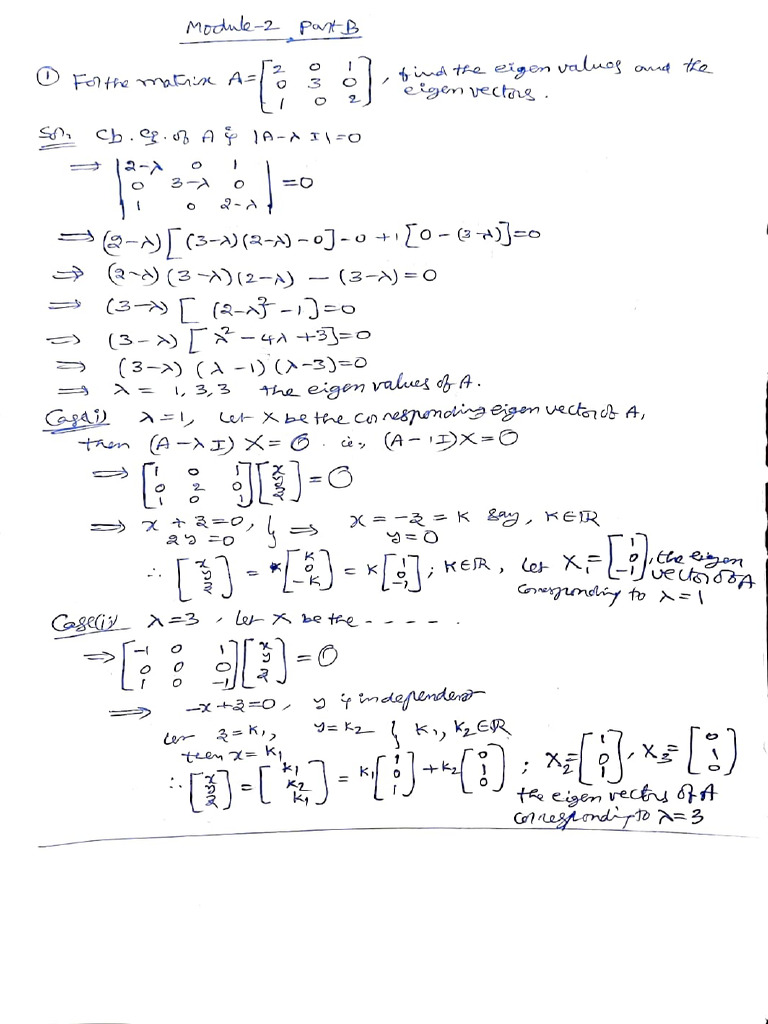 Module-2 Part-B
① For the matrix A = [2 0 1; 0 3 0; 1 0 2], find the eigen values and the eigen vectors.
Soln. Ch. eq. of A is |A-λI|=0
⇒ |2-λ 0 1; 0 3-λ 0; 1 0 2-λ| = 0
⇒ (2-λ)[(3-λ)(2-λ)-0]-0+1[0-(3-λ)]=0
⇒ (2-λ)(3-λ)(2-λ) - (3-λ)=0
⇒ (3-λ)[(2-λ)²-1]=0
⇒ (3-λ)[λ²-4λ+3]=0
⇒ (3-λ)(λ-1)(λ-3)=0
⇒ λ = 1,3,3 the eigen values of A.
Case(i) λ=1, Let X be the corresponding eigen vector of A,
then (A-λI)X=O. ie, (A-1I)X=O
⇒ [1 0 1; 0 2 0; 1 0 1][x; y; z] = O
⇒ x+z=0, 2y=0 } ⇒ x=-z=K say, K∈ℝ y=0
∴ [x; y; z] = [K; 0; -K] = K[1; 0; -1]; K∈ℝ, Let X₁=[1; 0; -1], the eigen vector of A
corresponding to λ=1
Case(ii) λ=3, Let X be the - - - - - .
⇒ [-1 0 1; 0 0 0; 1 0 -1][x; y; z] = O
⇒ -x+z=0, y is independent
Let z=K₁, y=K₂ } K₁,K₂∈ℝ
then x=K₁
∴ [x; y; z] = [K₁; K₂; K₁] = K₁[1; 0; 1]+K₂[0; 1; 0]; X₂=[1; 0; 1], X₃=[0; 1; 0]
the eigen vectors of A
corresponding to λ=3